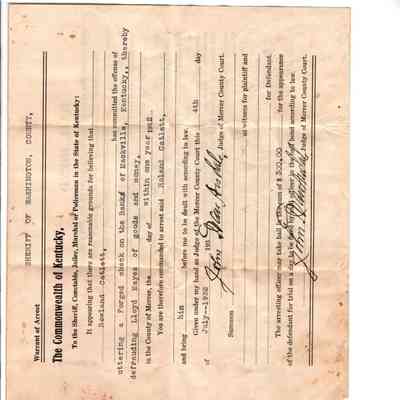 SHERIFF OF WASHINGTON, COUNTY,
Warrant of Arrest
The Commonwealth of Kentucky,
To the Sheriff, Constable, Jailer, Marshal or Policeman in the State of Kentucky:
It appearing that there are reasonable grounds for believing that
Rowland Catlett, has committed the offense of
uttering a Forged check on the Bank of Mackville, Kentucky,, thereby
defrauding Lloyd Hayes of goods and money,
in the County of Mercer, the day of within one year 191
You are therefore commanded to arrest said Roland Catlett,
and bring him before me to be dealt with according to law.
Given under my hand as Judge of the Mercer County Court this 4th day
of July--1922 191
John Judge of Mercer County Court.
Summons as witness for plaintiff and
for Defendant.
The arresting officer may take bail in the sum of $ 300.00 for the appearance
of the defendant for trial on a day to be fixed by the officer in the bail bond according to law.
John Judge of Mercer County Court.